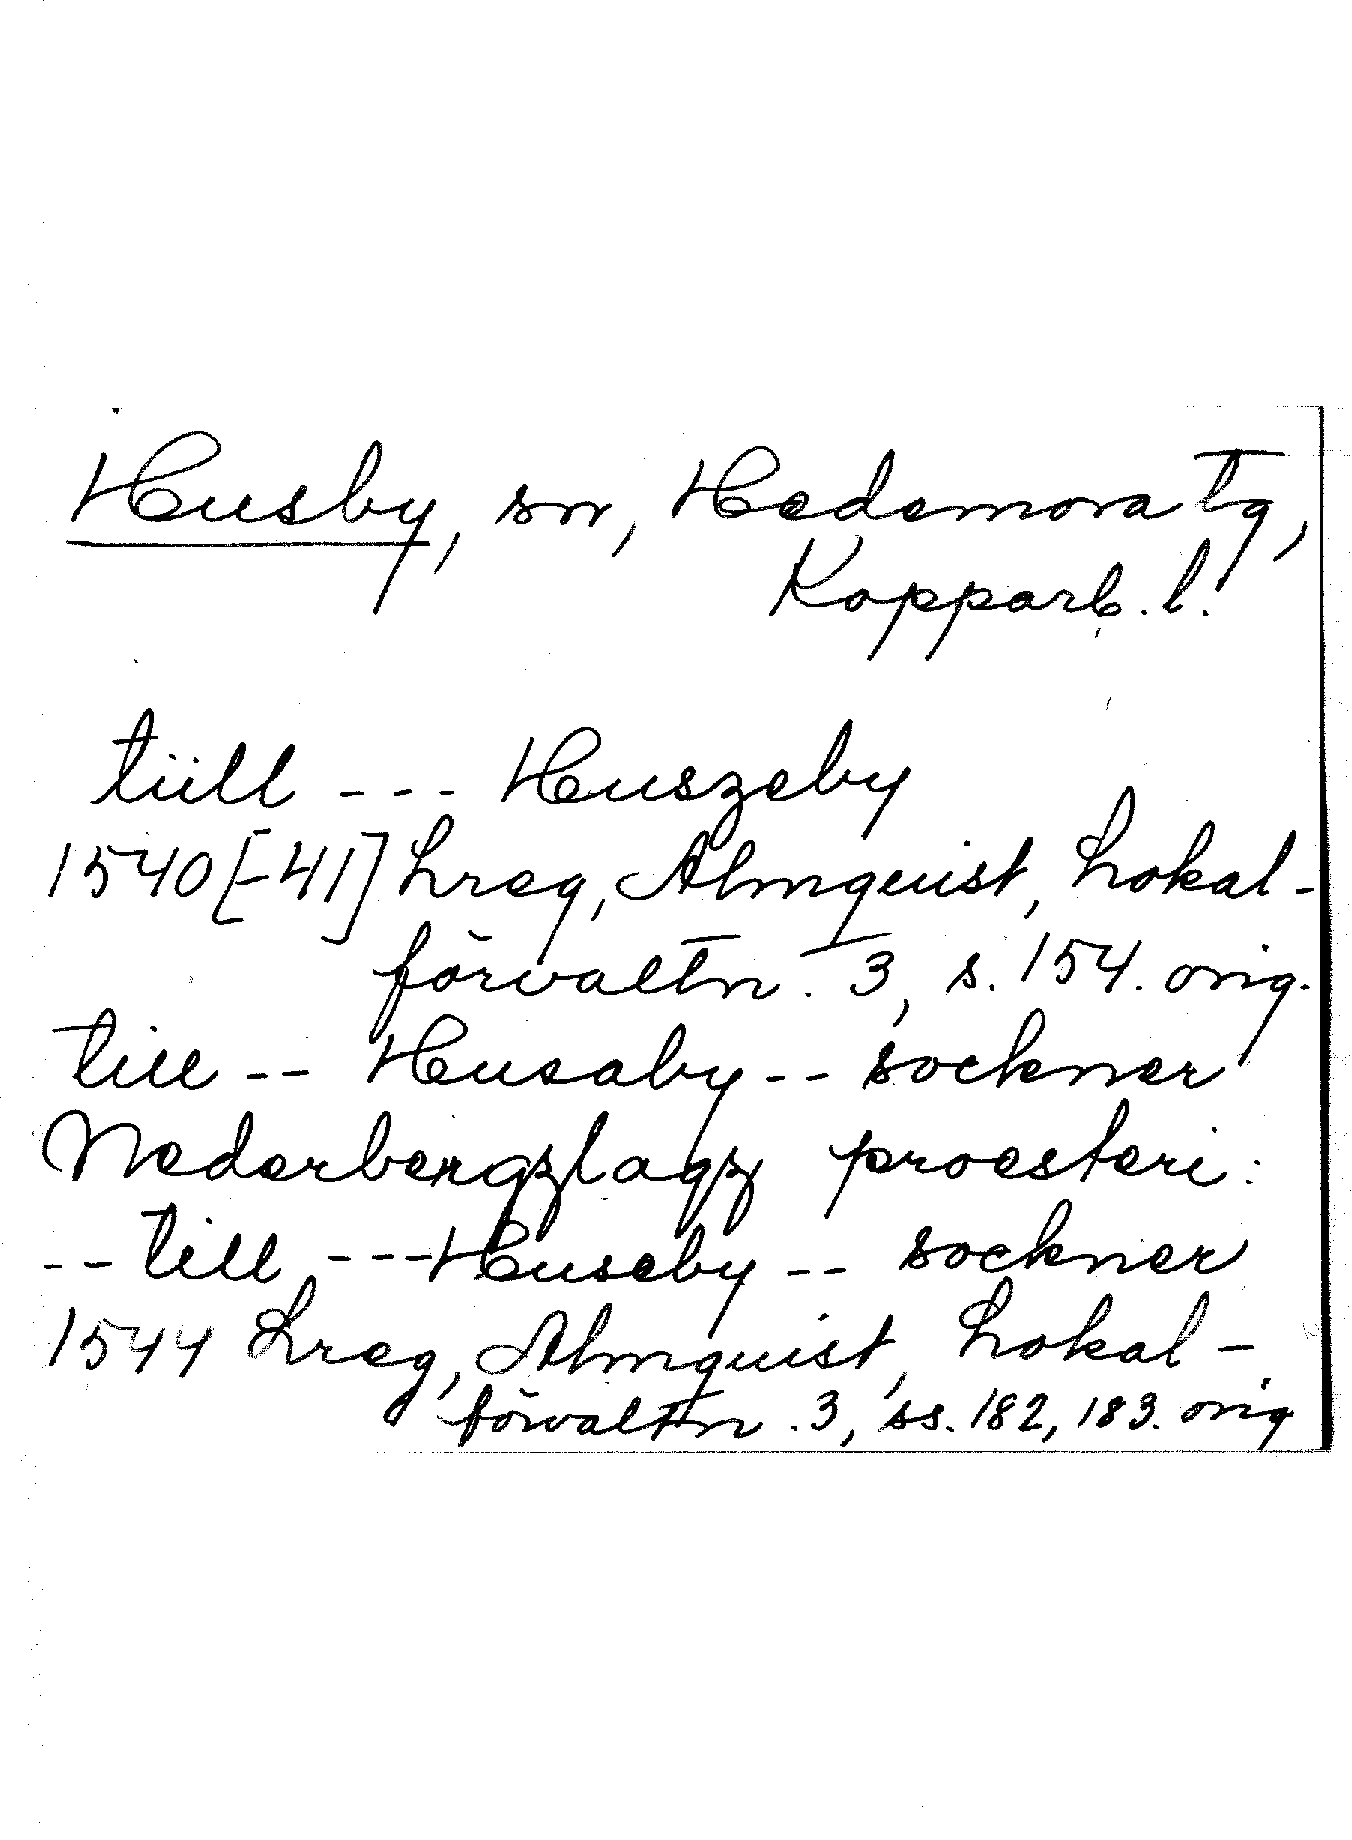 Husby, sn, Hedemora tg,
Kopparb. l.
tiill --- Huszeby
1540[-41] Lreg, Almquist, Lokal-
förvaltn. 3, s. 154. orig.
till -- Husaby -- sockner
Nederbergzlagz proesteri:
-- till --- Huseby -- sockner
1544 Lreg, Almquist, Lokal-
förvaltn. 3, ss. 182, 183. orig